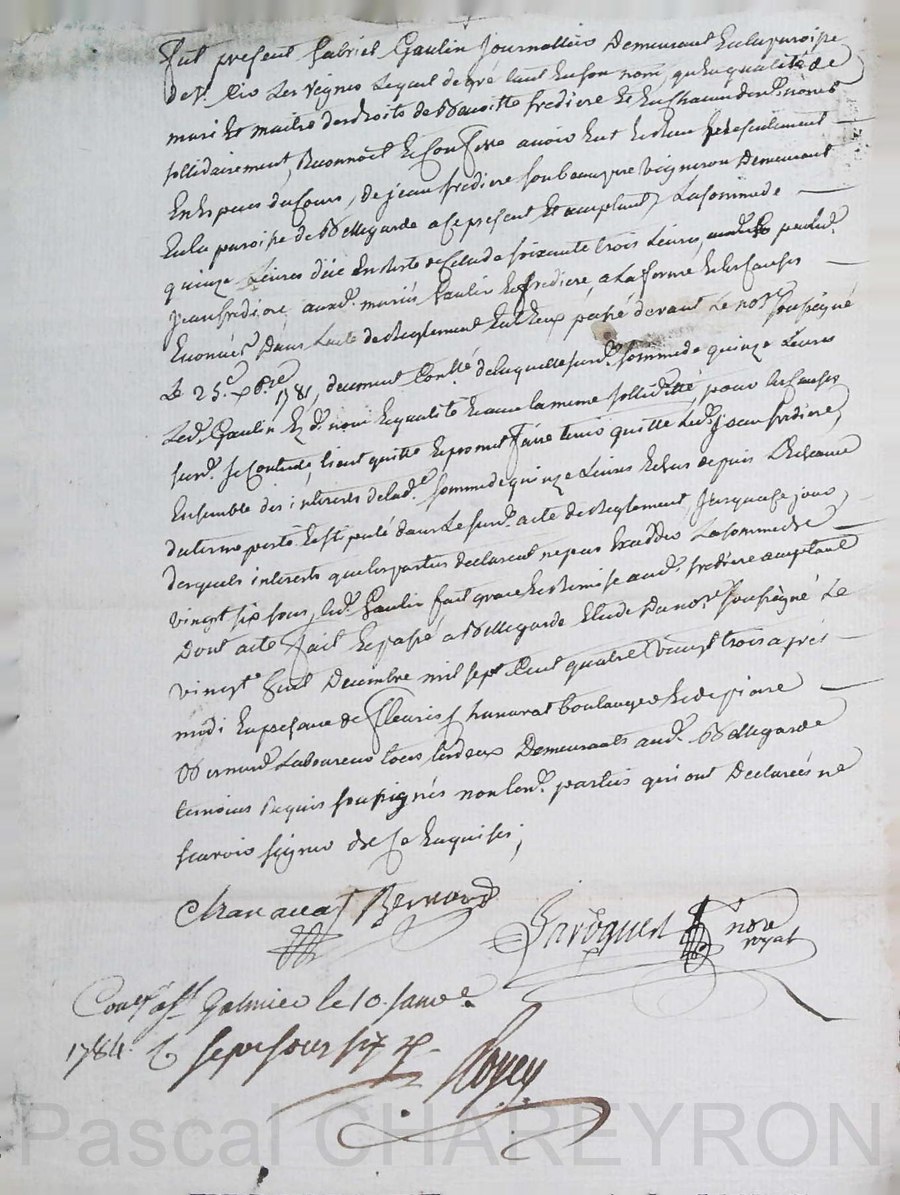 Fut present Gabriel Gaulin journallier Demeurant En la paroisse
de St. Cir Les Vignes Lequel de gré tant En son nom, qu'En qualité de
mari Et maitre des droits de Benoitte frediere Et En chacun desd. noms
sollidairement, Reconnoit Et Confesse avoir Eut Et Reçu presentement
En Especes du Cours, de jean fredière son beaupere vigneron Demeurant
En la paroisse de Bellegarde a ce present Et acceptant, La somme de
quinze Livres dûe En reste de Celle de soixante trois Livres, par led.
jean fredière auxd. mariés Gaulin Et fredière, a La forme Et les Causes
Enoncées Dans L'acte de Reglement Entr'Eux passé devant Le nore. soussigné
Le 25e. xbre. 1781, duement Conllé. de laquelle surd. somme de quinze Livres
Led. Gaulin Esd. noms Et qualité Et avec la meme sollidité, pour les Causes
surd. se Contente, tient quitte Et promet faire tenir quitte Led. jean fredière,
Ensemble des interets de lad. somme de quinze Livres Echus depuis L'Echeance
du terme porté Et stipulé dans Le surd. acte de Reglement, jusqu'a ce jour,
desquels interets que les parties declarent ne pas Exceder La somme de
vingt six sous, led. Gaulin fait grace Et Remise aud. fredière acceptant
Dont acte fait Et passé a Bellegarde Etude du nore. soussigné Le
vingt huit Decembre mil sept Cent quatre vingt trois après
midi En presence de fleuris chanavat boulanger Et de pierre
Bernard Laboureur tous les deux Demeurants aud. Bellegarde
temoins Requis soussignés non lesd. parties qui ont Declarées ne
scavoir signer de Ce Enquises;
Chanavat Bernard
nore
royal
Conllé a St Galmier le 10 janv.e
1784. R sept sous six d.
Pascal CHAREYRON